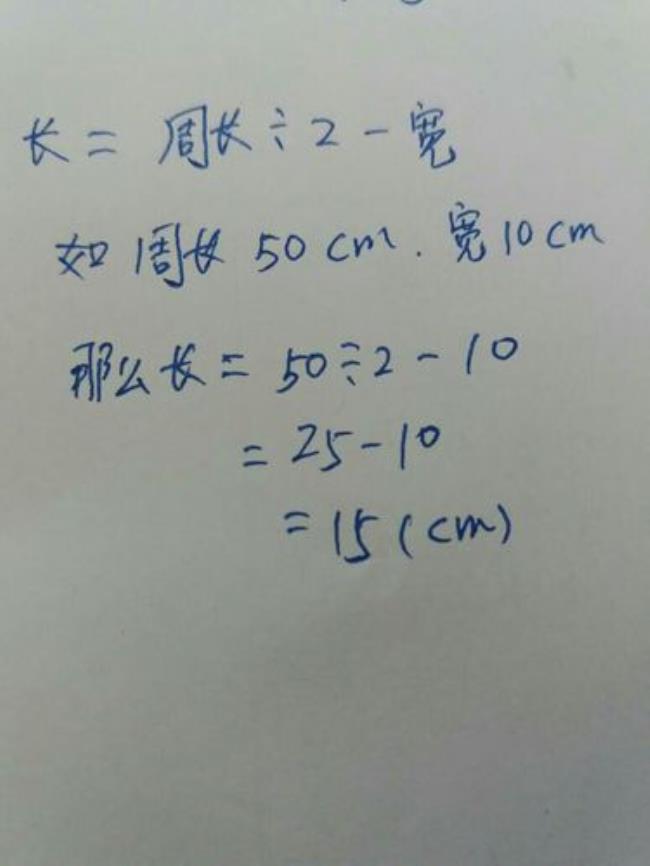 长 = 周长÷2-宽
如周长50cm.宽10cm
那么长=50÷2-10
=25-10
=15(cm)